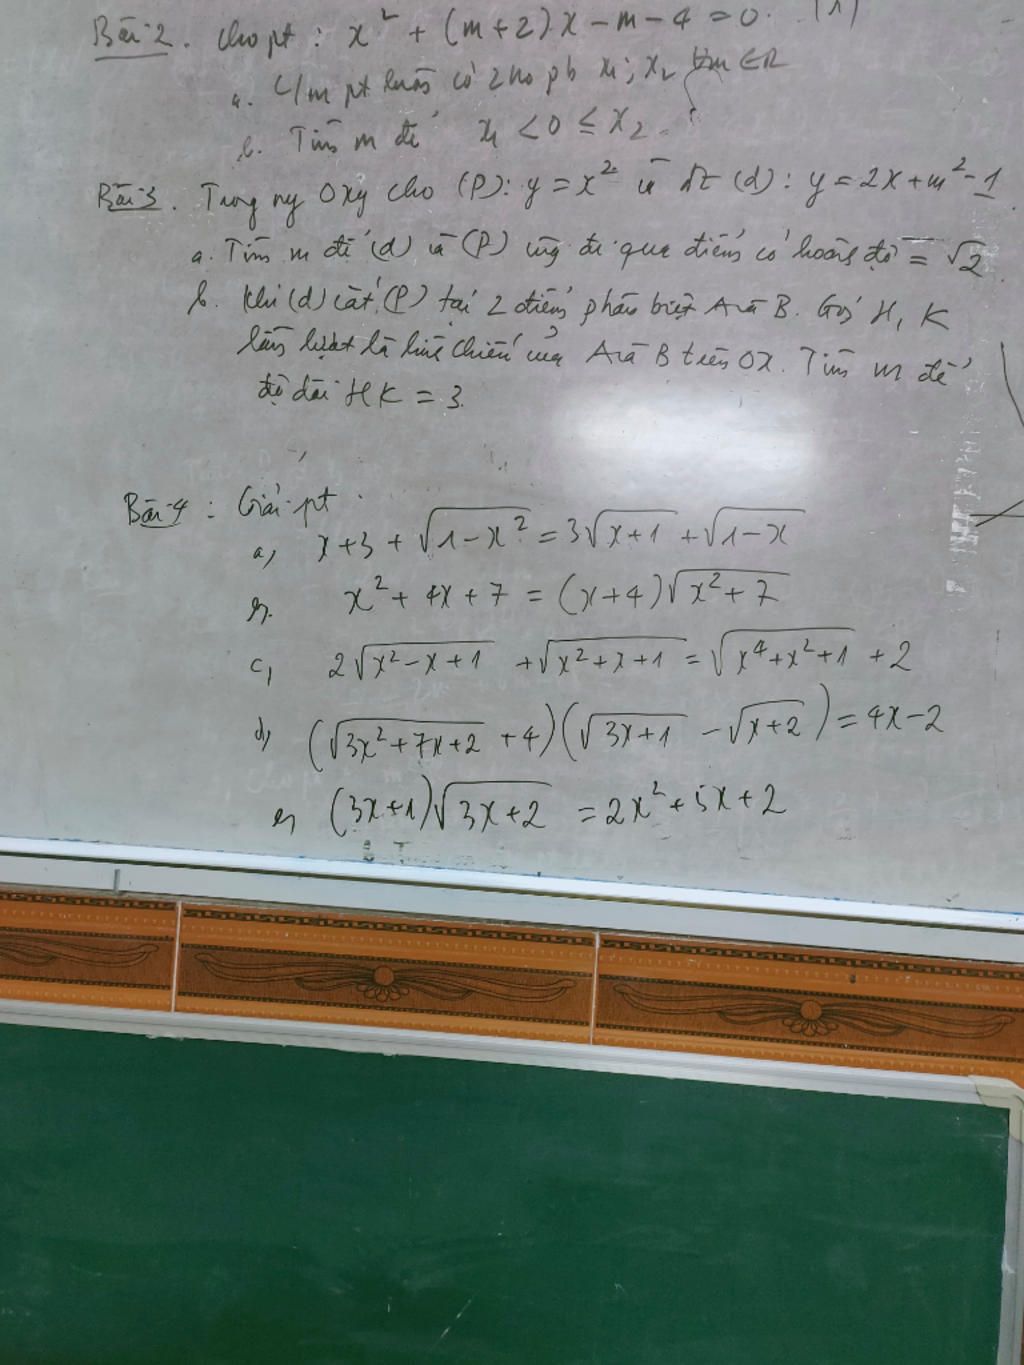 Bài 2. Cho pt: x² + (m+2)x - m - 4 = 0. (1)
a. C/m pt luôn có 2 no pb x₁; x₂ ∀m ∈ R
b. Tìm m để x₁ < 0 ≤ x₂.
Bài 3. Trong mp Oxy cho (P): y = x² và đt (d): y = 2x + m² - 1
a. Tìm m để (d) và (P) cùng đi qua điểm có hoành độ = √2
b. Khi (d) cắt (P) tại 2 điểm phân biệt A và B. Gọi H, K
lần lượt là hình chiếu của A và B trên OX. Tìm m để
độ dài HK = 3.
Bài 4: Giải pt
a, x+3 + √(1-x²) = 3√(x+1) + √(1-x)
b. x² + 4x + 7 = (x+4)√(x²+7)
c, 2√(x²-x+1) + √(x²+x+1) = √(x⁴+x²+1) + 2
d, (√(3x²+7x+2) + 4)(√(3x+1) - √(x+2)) = 4x-2
e, (3x+1)√(3x+2) = 2x²+5x+2